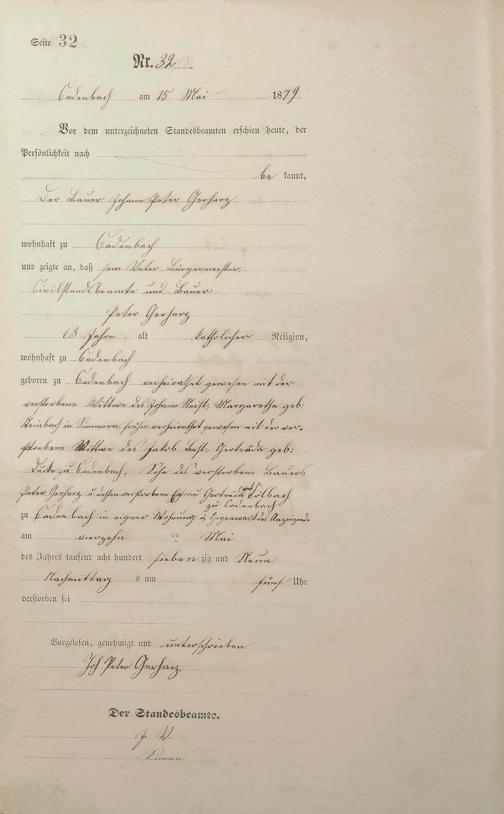 Seite 32
Nr. 32
Cadenbach am 15 Mai 1879
Vor dem unterzeichneten Standesbeamten erschien heute, der
Persönlichkeit nach
be kannt,
Der Bauer Johann Peter Gerharz
wohnhaft zu Cadenbach
und zeigte an, daß sein Vater Bürgermeister,
Civilstandsbeamte und Bauer
Peter Gerharz
68 Jahre alt katholischer Religion,
wohnhaft zu Cadenbach
geboren zu Cadenbach verheirathet gewesen mit der
verstorbene Wittwe des Johann Margaretha geb
in Simmern früher verheirathet gewesen mit der ver-
storbene Wittwe des Jakob Gertruda geb:
zu Cadenbach, Sohn des verstorbene Bauers
Peter Gerharz u dessen verstorbene Ehefrau Gertruda geb
zu Cadenbach
zu Cadenbach in eigner Wohnung in Gegenwart des Anzeigende
am vierzehn ten Mai
des Jahres tausend acht hundert sieben zig und Neun
Nachmittag s um fünf Uhr
verstorben sei
Vorgelesen, genehmigt und unterschrieben
Joh Peter Gerharz.
Der Standesbeamte.
J. V.